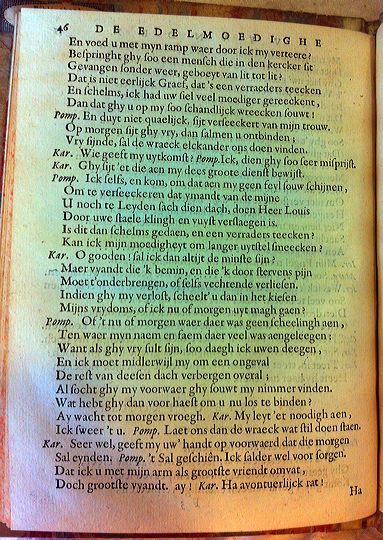 46 DE EDELMOEDIGHE
En voed u met myn ramp waer door ick my verteere?
Bespringht ghy soo een mensch die in den kercker sit
Gevangen sonder weer, geboeyt van lit tot lit?
Dat is niet eerlijck Graef, dat 's een verraeders teecken
En schelms, ick had uw siel veel moediger gereeckent,
Dan dat ghy u op my soo schandlijck wreecken souwt!
Pomp. En duyt niet qualijck, sijt verseeckert van mijn trouw.
Op morgen sijt ghy vry, dan salmen u ontbinden;
Vry sijnde, sal de wraeck elckander ons doen vinden.
Kar. Wie geeft my uytkomst? Pomp. Ick, dien ghy soo seer misprijst.
Kar. Ghy sijt 'et die aen my dees groote dienst bewijst.
Pomp. Ick selfs, en kom, om dat aen my geen feyl souw schijnen,
Om te verseeckeren dat ymandt van de mijne
U noch te Leyden sach dien dach, doen Heer Louis
Door uwe staele klingh en vuyst verslaegen is.
Is dit dan schelms gedaen, en een verraders teecken?
Kan ick mijn moedigheyt om langer uytstel smeecken?
Kar. O gooden! sal ick dan altijt de minste sijn?
Maer vyandt die 'k bemin, en die 'k door stervens pijn
Moet t'onderbrengen, of selfs vechtende verliesen.
Indien ghy my verlost, scheelt' u dan in het kiesen
Mijns vrydoms, of ick nu of morgen uyt magh gaen?
Pomp. Of 't nu of morgen waer daer was geen scheelingh aen,
Ten waer myn naem en faem daer veel was aengeleegen:
Want als ghy vry sult sijn, soo daegh ick uwen deegen,
En ick moet midlerwijl my om een ongeval
De rest van deesen dach verbergen overal;
Al socht ghy my voorwaer ghy souwt my nimmer vinden.
Wat hebt ghy dan voor haest om u nu los te binden?
Ay wacht tot morgen vroegh. Kar. My leyt 'er noodigh aen,
Ick sweer 't u. Pomp. Laet ons dan de wraeck wat stil doen staen.
Kar. Seer wel, geeft my uw' handt op voorwaerd dat die morgen
Sal eynden. Pomp. 't Sal geschiên. Ick salder wel voor sorgen.
Dat ick u met mijn arm als grootste vriendt omvat,
Doch grootste vyandt. ay! Kar. Ha avontuerlijck rat!
Ha